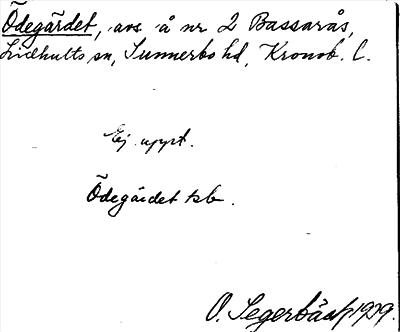 Ödegärdet, avs. å nr 2 Bassarås,
Lidhults sn, Sunnerbo hd, Kronob. l.
Ej uppt.
Ödegärdet kb.
O. Segerbäck 1929.